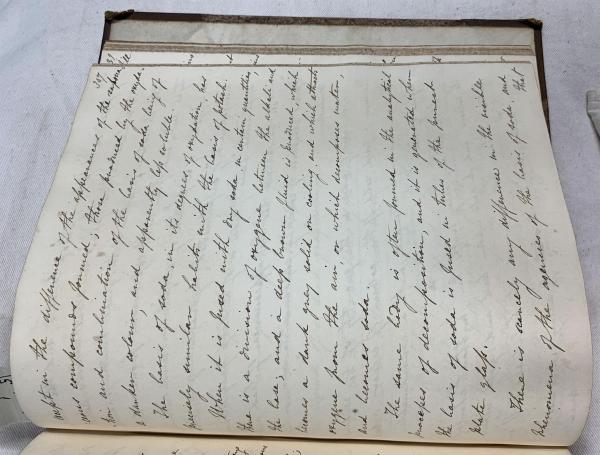 except in the difference of the appearances of the sapona
ceous compounds formed; those produced by the oxyda
tion and combination of the basis of soda being of
a darker colour, and apparently less soluble.
The basis of soda, in its degrees of oxydation, has
precisely similar habits with the basis of potash.
When it is fused with dry soda in certain quantities,
there is a division of oxygene between the alkali and
the base, and a deep brown fluid is produced which
becomes a dark grey solid on cooling and which attracts
oxygene from the air or which decomposes water,
and becomes soda.
The same body is often formed in the analytical
processes of decomposition, and it is generated when
the basis of soda is fused in tubes of the purest
plate glass.
There is scarcely any difference in the visible
phenomena of the agencies of the basis of soda, and that